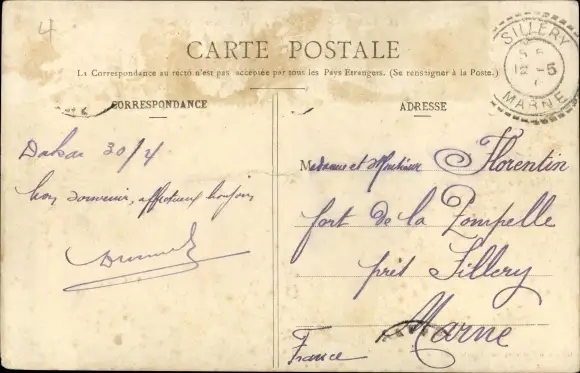 4
CARTE POSTALE
La Correspondance au recto n'est pas acceptée par tous les Pays Etrangers. (Se renseigner à la Poste.)
SILLERY
MARNE
CORRESPONDANCE
ADRESSE
Dakar 30/4
bon souvenir, affectueux bonjour
Madame et Monsieur Florentin
fort de la Pompelle
près Sillery
Marne
France